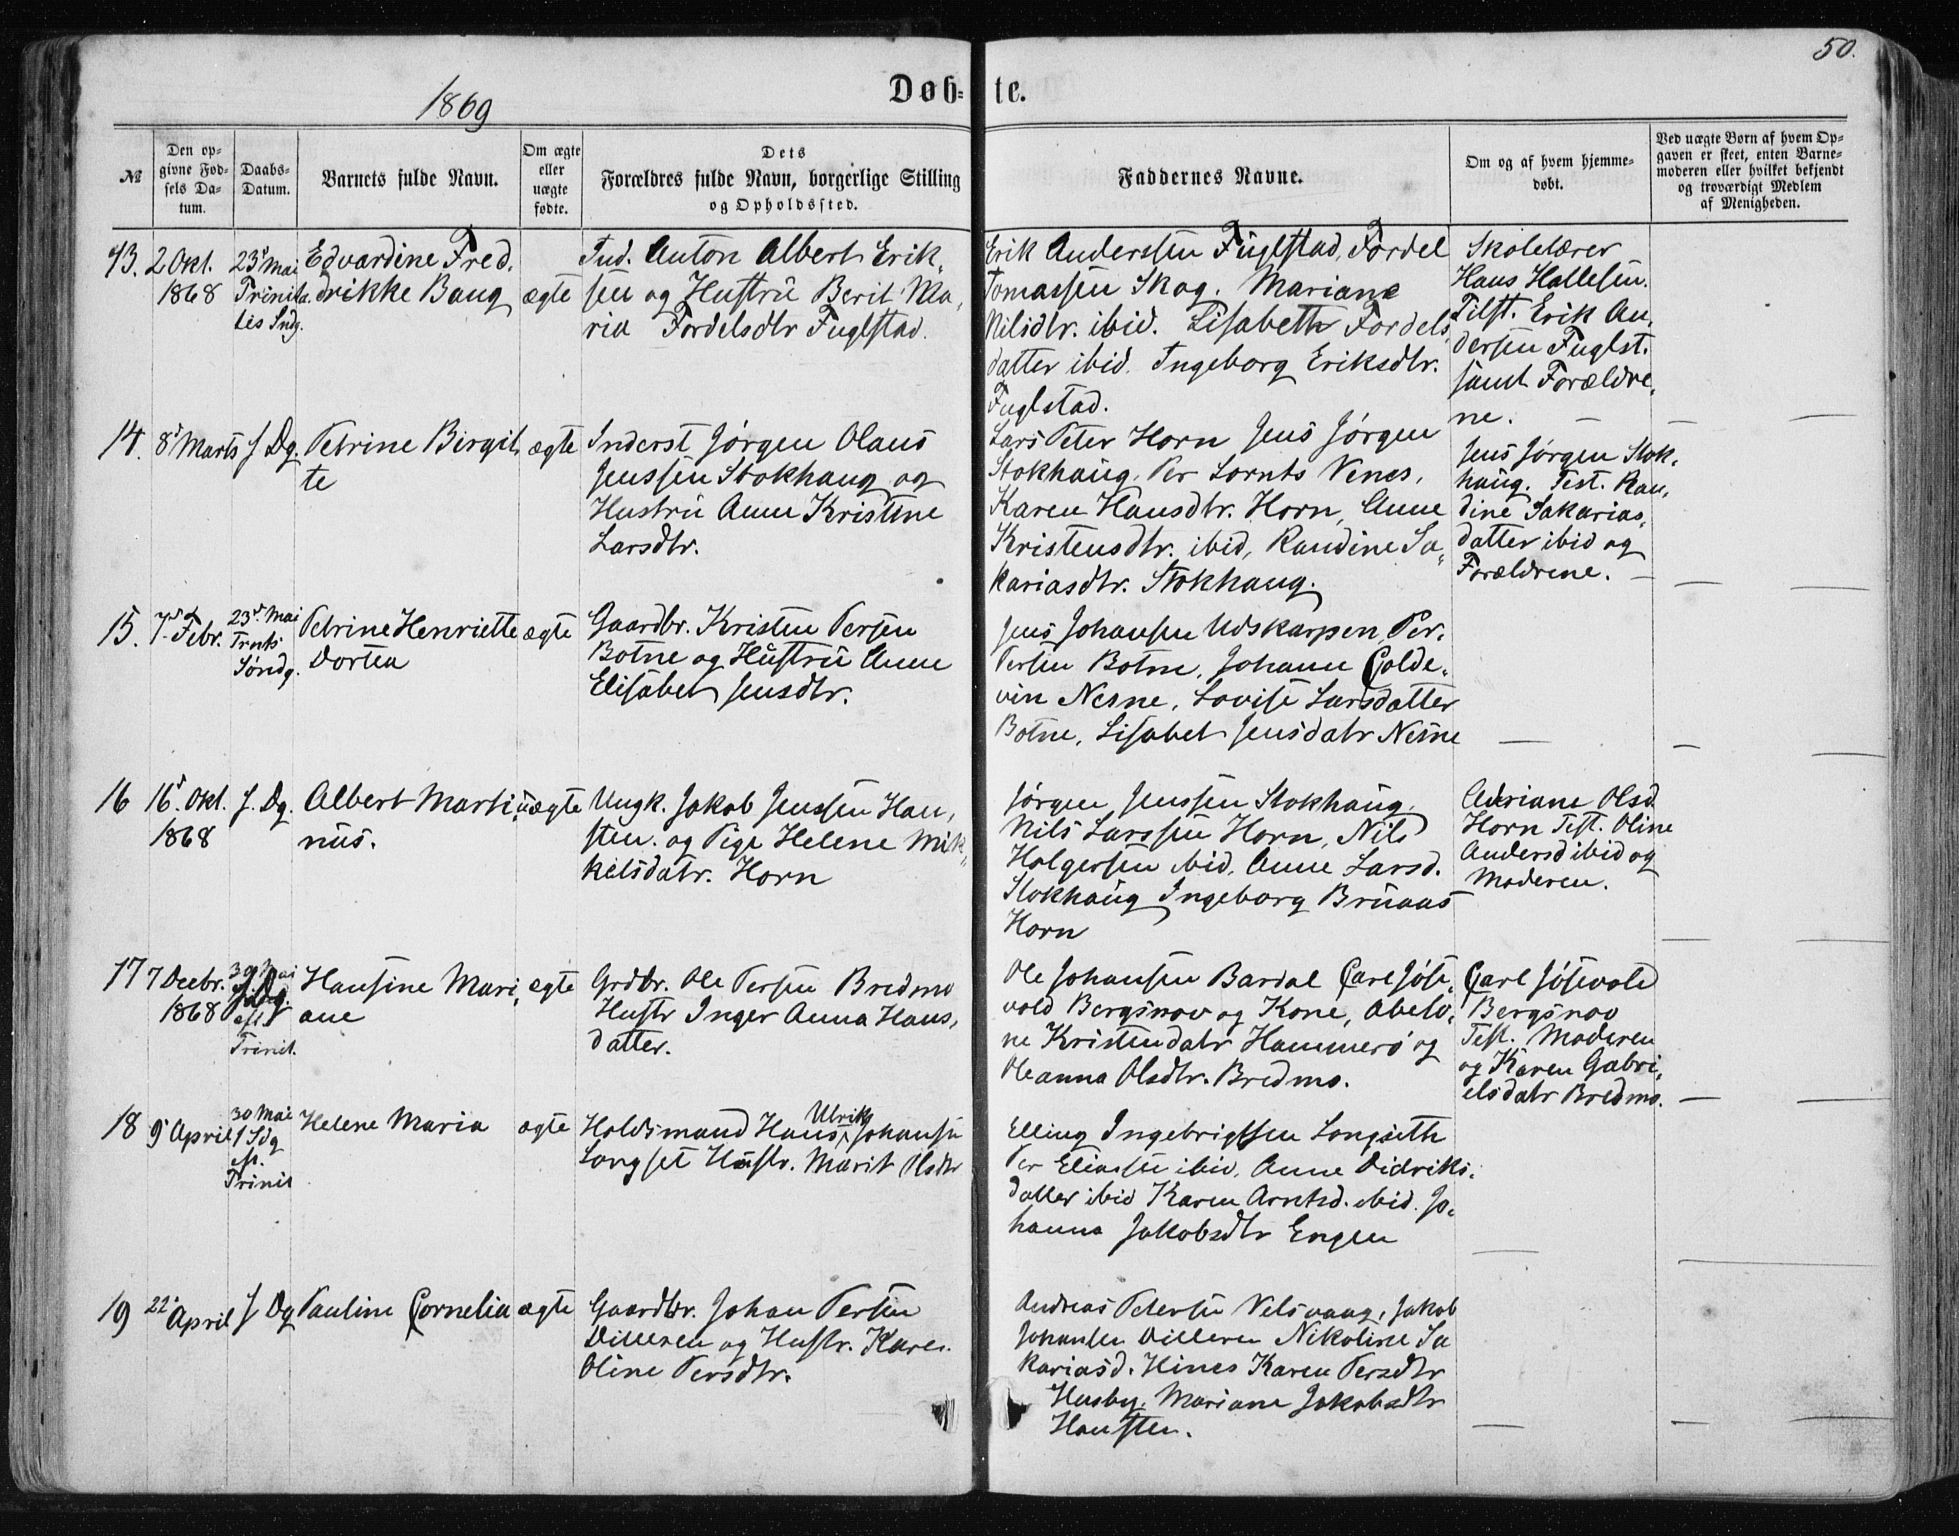 50.
1869
Døb-te.
№
Den op-
givne Fød-
sels Da-
tum.
Daabs-
Datum.
Barnets fulde Navn.
Om ægte
eller
uægte
fødte.
Dets
Forældres fulde Navn, borgerlige Stilling
og Opholdssted.
Faddernes Navne.
Om og af hvem hjemme-
døbt.
Ved uægte Børn af hvem Op-
gaven er skeet, enten Barne-
moderen eller hvilket bekjendt
og troværdigt Medlem
af Menigheden.
13.
2 Okt.
1868
23d Mai
Trinita
tis Sndg.
Edvardine Fred,
drikke Bang
ægte
Ind. Anton Albert Erik,
sen og Hustru Berit Ma,
ria Fordelsdtr Fuglstad.
Erik Anderssen Fuglstad, Fordel
Tomassen Skog. Mariane
Nilsdtr. ibid. Lisabeth Fordels,
datter ibid. Ingeborg Eriksdtr.
Fuglstad.
Skolelærer
Hans Hallesen.
Tilst. Erik An,
dersen Fuglst.
samt Forældre,
ne.
14.
8d Marts
s. Dg.
Petrine Birgit,
te
ægte
Inderst Jørgen Olaus
Jenssen Stokhaug og
Hustru Anne Kristine
Larsdtr.
Lars Peter Horn Jens Jørgen
Stokhaug. Per Lornts Venes,
Karen Hansdtr. Horn, Anne
Kristensdtr. ibid, Randine Sa,
kariasdtr. Stokhaug.
Jens Jørgen Stok,
haug. Test. Ran,
dine Sakarias,
datter ibid og
Forældrene.
15.
7d Febr.
23d Mai
Trnts
Søndg.
Petrine Henriette
Dortea
ægte
Gaardbr. Kristen Persen
Botne og Hustru Anne
Elisabet Jensdtr.
Jens Johansen Udskarpen, Per.
Persen Botne, Johann Colde,
vin Nesne, Lovise Larsdatter
Botne, Lisabet Jensdatr Nesne
16
16d. Okt.
1868
s. Dg.
Albert Marti,
nus.
uægte
Ungk. Jakob Jenssen Han,
sten. og Pige Helene Mik,
kelsdatr. Horn
Jørgen Jenssen Stokhaug.
Nils Larssen Horn, Nils
Holgersen ibid, Anne Larsd.
Stokhaug Ingeborg Bruaas
Horn
Adriane Olsd
Horn Test. Oline
Andersd ibid og
Moderen.
17
7 Decbr.
1868
30 Mai
s. Dg.
eft
Trinit.
Hansine Mari,
ane
ægte
Grdbr. Ole Persen Bredmo
Hustr Inger Anna Hans,
datter.
Ole Johansen Bardal Carl Jøse,
vold Bergsnov og Kone, Abelo,
ne Kristendatr Hammerø og
Oleanna Olsdtr. Bredmo.
Carl Jøsevold
Bergsnov
Test. Moderen
og Karen Gabri,
elsdatr Bredmo.
18
9d April
30 Mai
1 Sdg
eft.
Trinit
Helene Maria
ægte
Holdsmand Hans Ulrik Johansen
Langset Hustr. Marit Olsdtr
Elling Ingebrigtsen Langseth
Per Eliassen ibid, Anne Didriks,
datter ibid Karen Arntsd. ibid. Jo,
hanna Jakobsdtr Engen
19
22d April
s Dg
Pauline Cornelia
ægte
Gaardbr. Johan Persen
Dilleren og Hustr. Karen
Oline Persdtr.
Andreas Petersen Velsvaag, Jakob
Johansen Dilleren Nikoline Sa
kariasd. Hines Karen Persdtr
Husby. Mariane Jakobsdtr
Hansten.